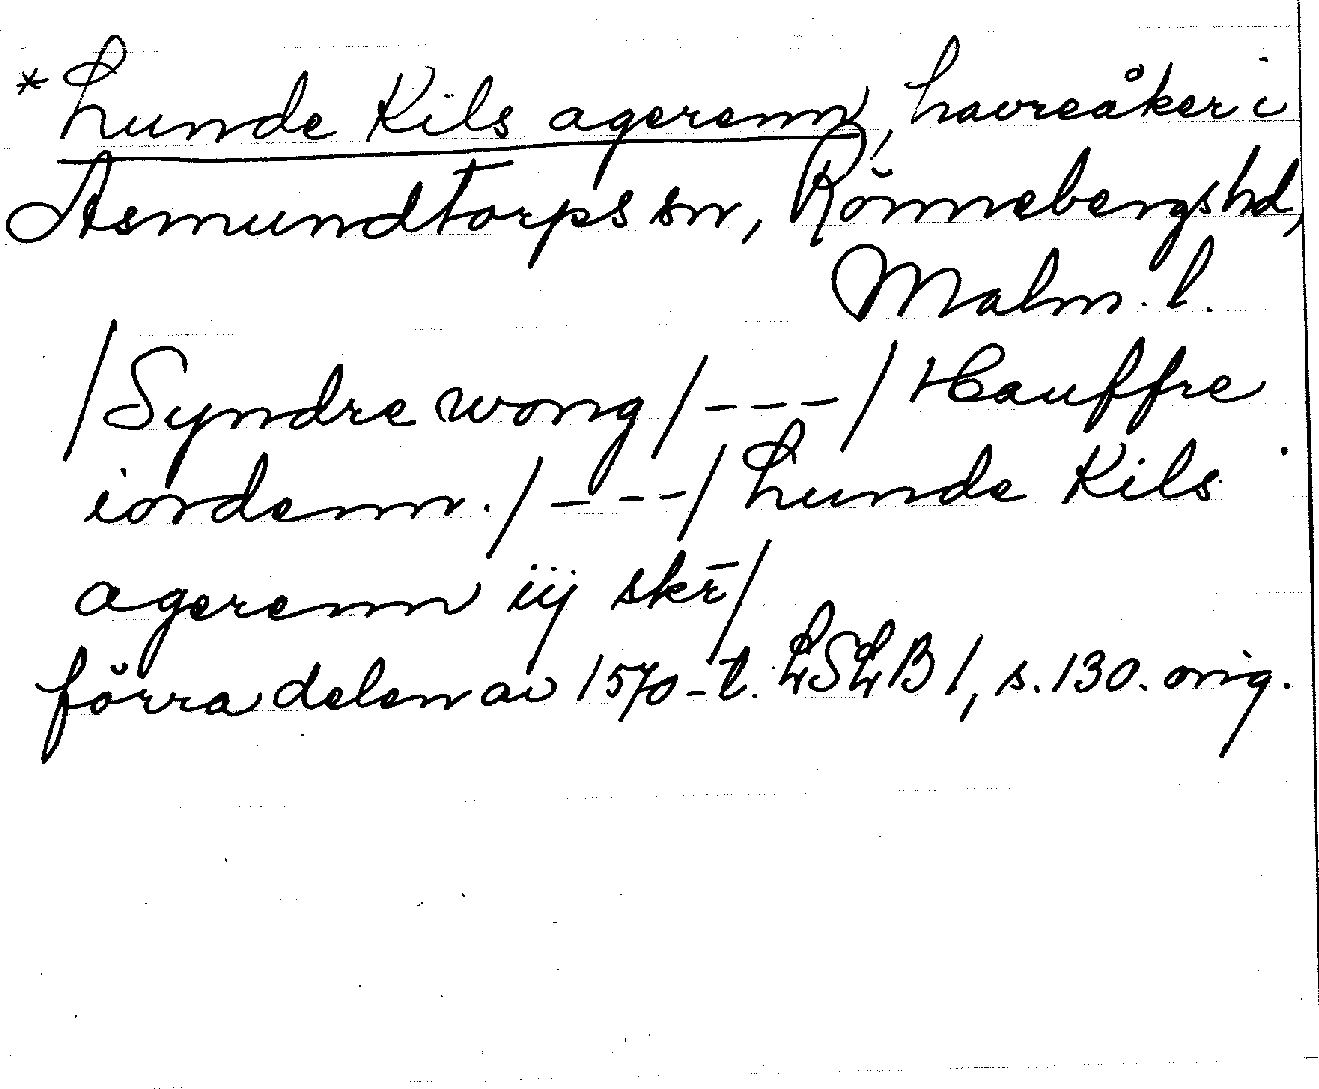 *Lunde Kils agerenn, havreåker i
Asmundtorps sn, Rönnebergs hd,
Malm. l.
/Syndre wong/---/Hauffre
iordenn./---/Lunde Kils
agerenn iij skr̄/
förra delen av 1570-t. LSLB 1, s. 130. orig.